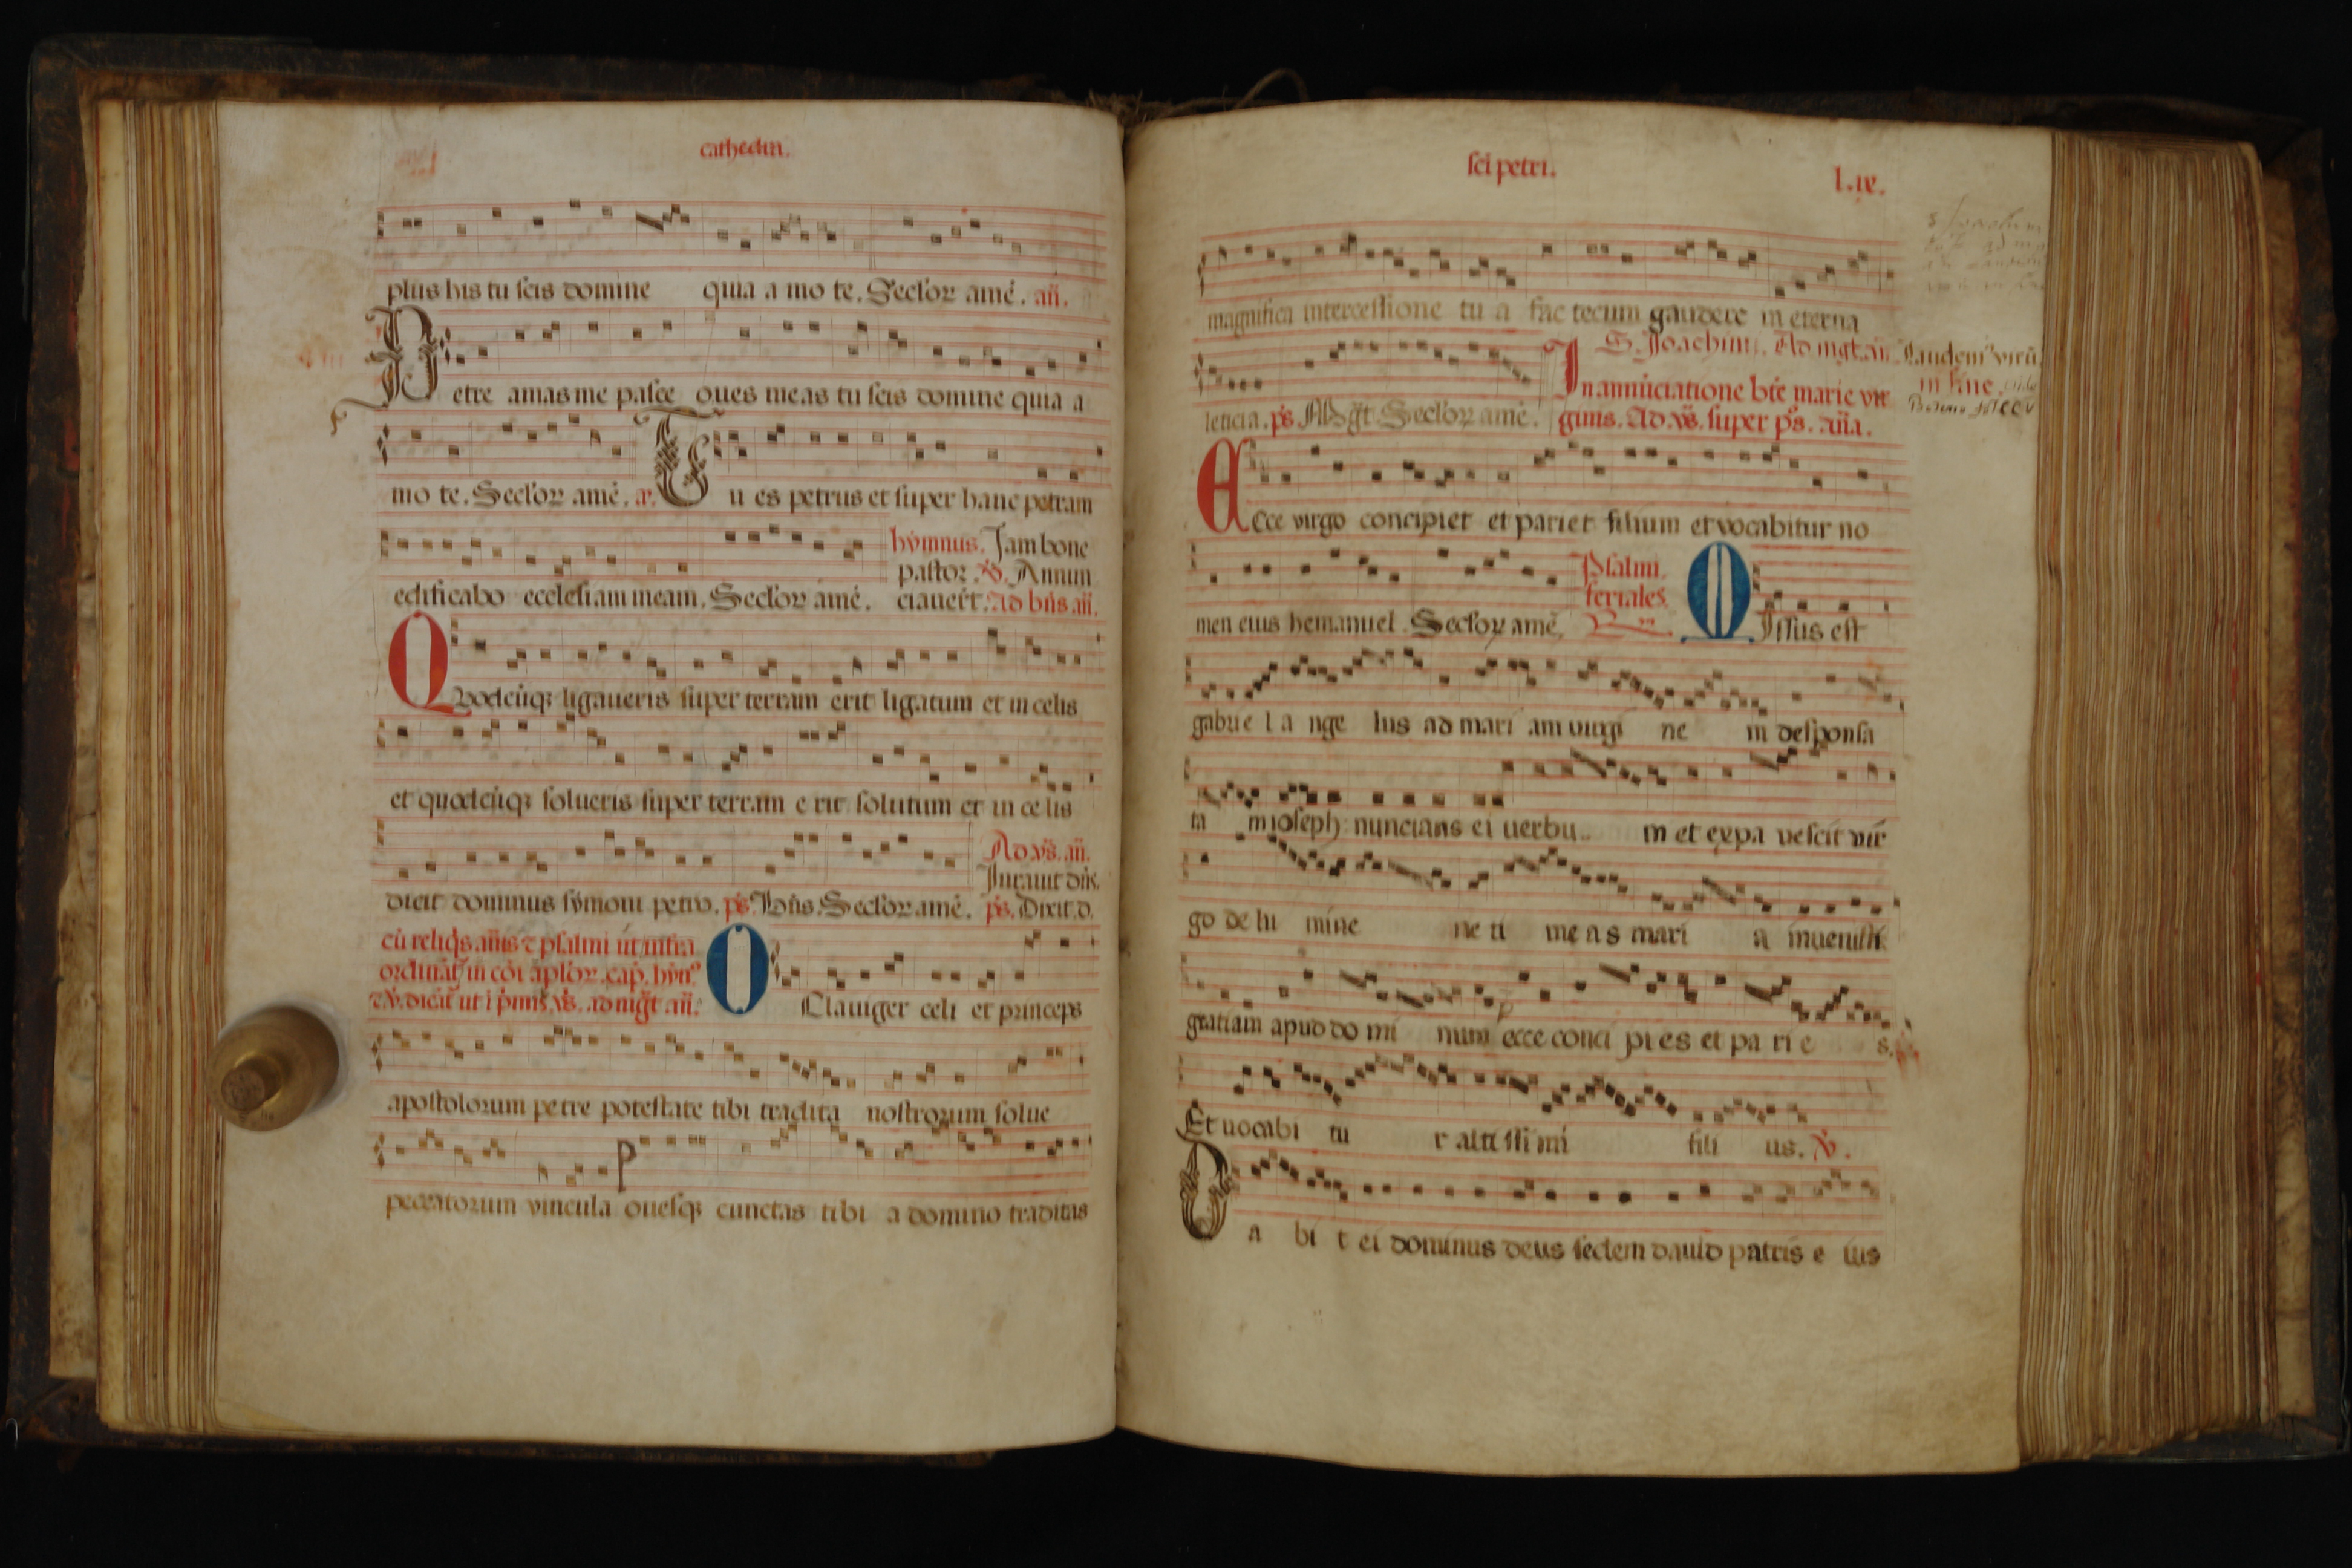 cathedra.
plus his tu scis domine quia a mo te. Seclor amē. añ.
Petre amas me pasce oues meas tu scis domine quia a
mo te. Seclor amē. a. Tu es petrus et super hanc petram
hẏmnus. Iam bone
pastor. ℣. Annun
edificabo ecclesiam meam. Seclor amē. ciauer̄t. Ad bn̄s añ.
Quodcūqꝫ ligaueris super terram erit ligatum et in celis
et quodcūqꝫ solueris super terram e rit solutum et in ce lis
Ad vs̄. añ.
Iurauit dn̄s.
dicit dominus sẏmoni petro. ps̄. Bn̄s. Seclor amē. ps̄. Dixit. d.
cū reliqs añis ⁊ psalmi ut infra
ordinātr in cōi aplōr. cap. hẏn9
⁊ ℣. dicūt ut i primis vs̄. ad mgt añ.
O Clauiger celi et princeps
apostolorum petre potestate tibi tradita nostrorum solue
peccatorum vincula ouesqꝫ cunctas tibi a domino traditas
sci petri. l.ix.
magnifica intercessione tu a fac tecum gaudere in eterna
S. Joachimi. Ad mgt. añ. Laudem9 virū
In annūciatione bte marie vir in fine.
leticia. ps̄ Mgt. Seclor amē. ginis. Ad. vs̄. super ps̄. aña.
Ecce virgo concipiet et pariet filium et vocabitur no
Psalmi
feriales.
men eius hemanuel. Seclor amē. Missus est
gabrie l a nge lus ad mari am virgi ne m desponsa
ta m ioseph nuncians ei uerbu m et expa vescit vir
go de lu mine ne ti me a s mari a inuenisti
gratiam apud do mi num ecce conci pi es et pa ri e s.
Et uocabi tu r alti ssi mi fili us. ℣.
Da bi t ei dominus deus sedem dauid patris e ius